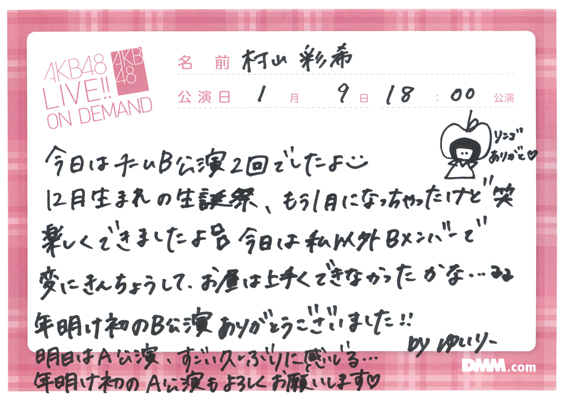 AKB48
LIVE!!
ON DEMAND
AKB
48
名前 村山 彩希
公演日 1月 9日 18:00 公演
リンゴ
ありがと♡
今日はチームB公演2回でしたよ
12月生まれの生誕祭、もう1月になっちゃったけど笑
楽しくできましたよ 今日は私以外Bメンバーで
変にきんちょうして、お昼は上手くできなかったかな...
年明け初のB公演ありがとうございました!!
by ゆいりー
明日はA公演、すごい久しぶりに感じる...
年明け初のA公演もよろしくお願いします♡
DMM.com